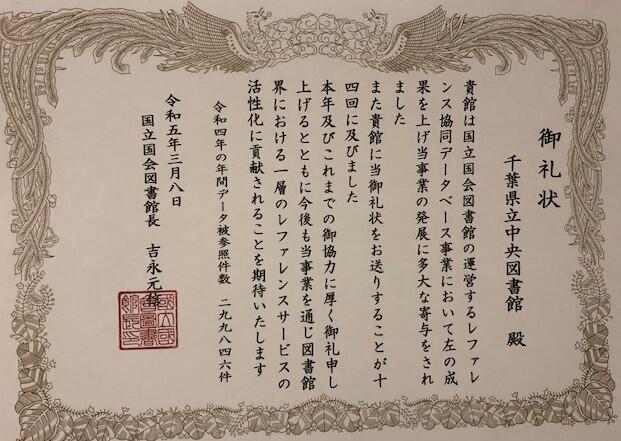 御礼状
千葉県立中央図書館 殿
貴館は国立国会図書館の運営するレファレ
ンス協同データベース事業において左の成
果を上げ当事業の発展に多大な寄与をされ
ました
また貴館に当御礼状をお送りすることが十
四回に及びました
本年及びこれまでの御協力に厚く御礼申し
上げるとともに今後も当事業を通じ図書館
界における一層のレファレンスサービスの
活性化に貢献されることを期待いたします
令和四年の年間データ被参照件数 二九九八四六件
令和五年三月八日
国立国会図書館長 吉永元信